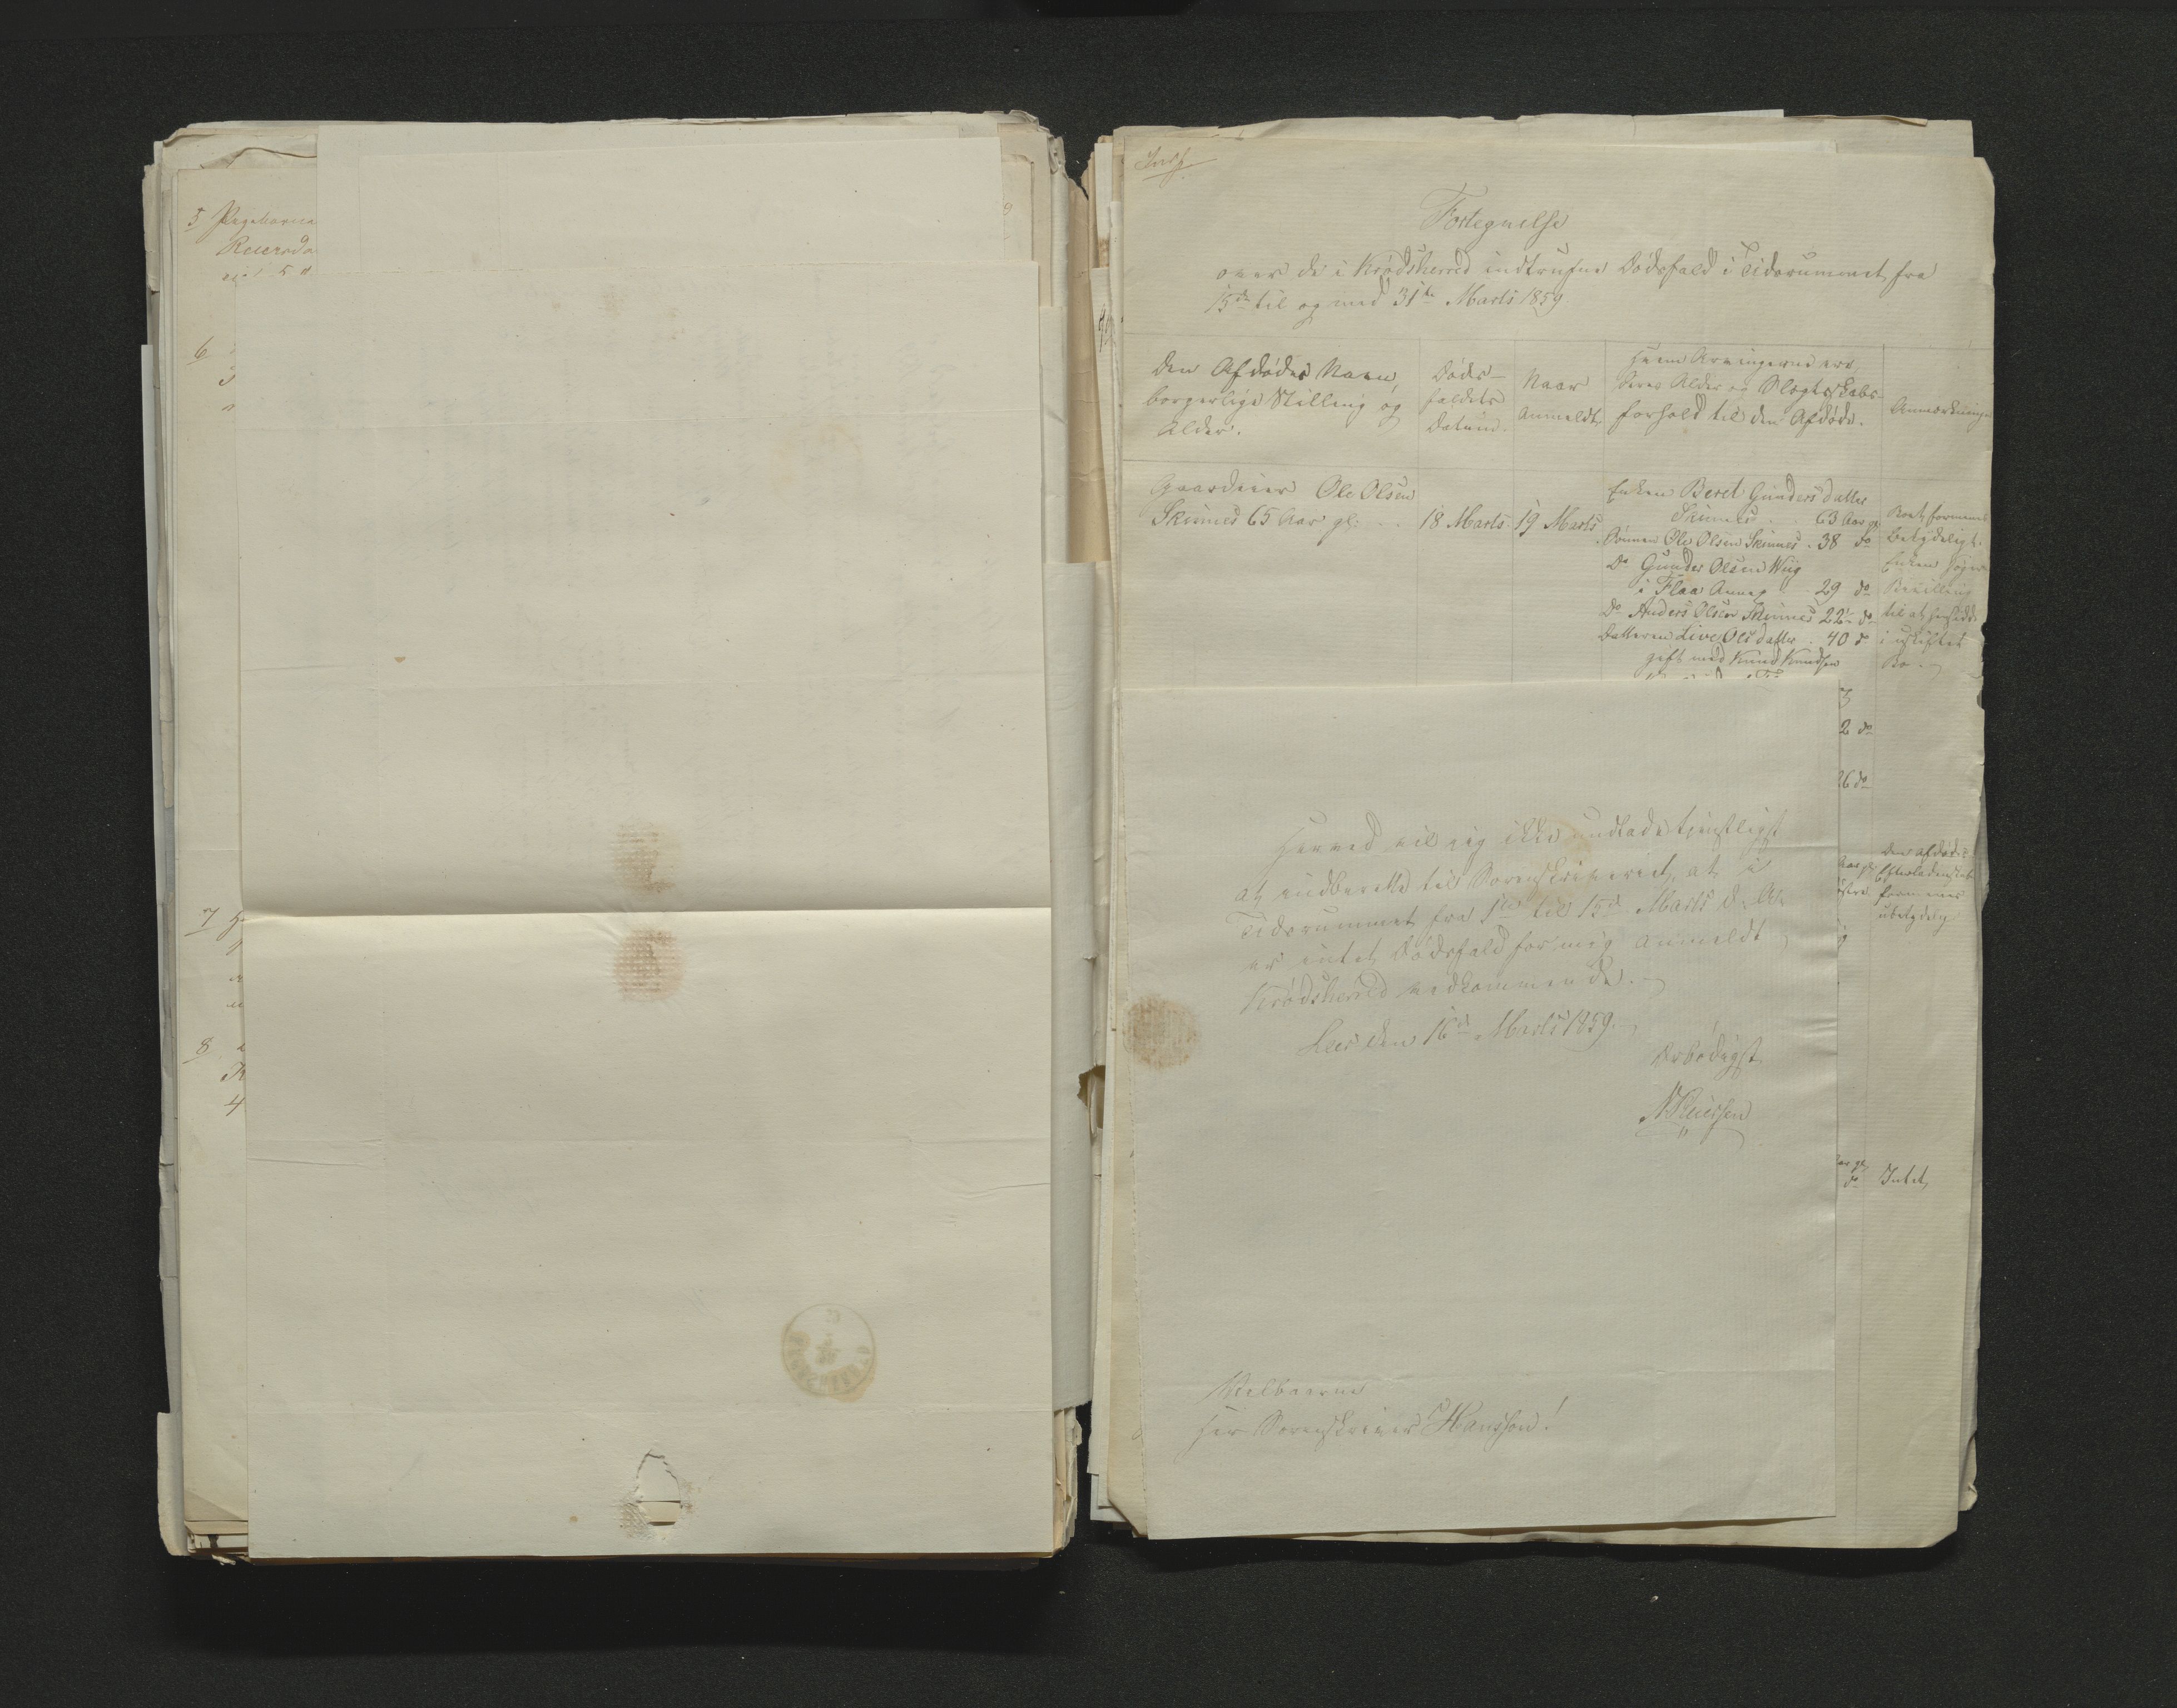 5
Reiersda
6
7
8
4
Indf.
Fortegnelse
over de i Krødsherred indtrufne Dødsfald i Tidsrummet fra
15de til og med 31te Marts 1859
Den Afdødes Navn,
borgerlige Stilling og
Alder.
Døds-
faldets
Datum.
Naar
Anmeldt,
Hvem Arvingerne ere,
deres Alder og Slægtskabs-
forhold til den Afdøde.
Anmærkninger
Gaardeier Ole Olsen
Skinnes 65 Aar gl:
18 Marts
19 Marts
Enken Beret Gundersdatter
Skinnes 63 Aar gl
Sønnen Ole Olsen Skinnes 38 do
Do Gunder Olsen Wiig
i Flaa Annex 29 do
Do Anders Olsen Skinnes 22 do
Datteren Live Olsdatter 40 do
gift med Knud Knudsen
Boet formenes
betydeligt.
Enken søger
Bevilling
til at hensidde
i uskiftet
Bo.
2 do
26 do
Aar gl
Den afdødes
Efterladenskab
formenes
ubetydelig
Aar gl,
do
Intet,
Herved vil jeg ikke undlade tjenstligst
at indberette til Sorenskriveriet, at i
Tidsrummet fra 1te til 15de Marts d. A.
er intet Dødsfald for mig anmeldt
Krødsherred vedkommende.
Lees den 16de Marts 1859.
Ærbødigst
Velbaarne
Herr Sorenskriver Hansson!